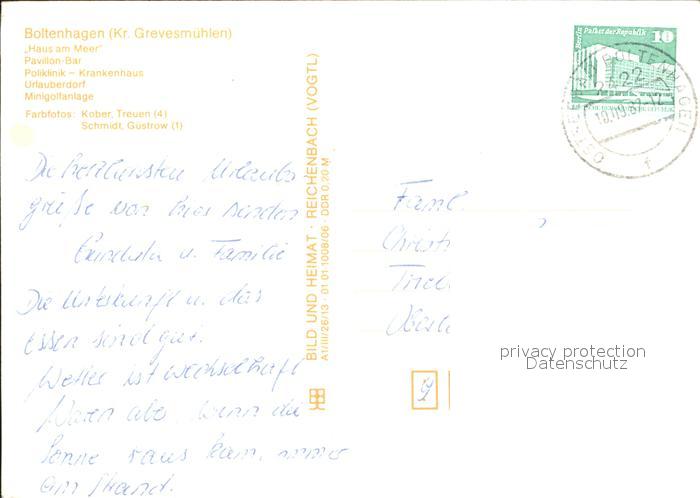 Boltenhagen (Kr. Grevesmühlen)
„Haus am Meer"
Pavillon-Bar
Poliklinik – Krankenhaus
Urlauberdorf
Minigolfanlage
Farbfotos: Kober, Treuen (4)
Schmidt, Güstrow (1)
Die herzlichsten Urlaubs-
grüße von hier senden
u. Familie
Die Unterkunft u. das
Essen sind gut.
Wetter ist wechselhaft
Waren aber, wenn die
Sonne raus kam, immer
am Strand.
BILD UND HEIMAT · REICHENBACH (VOGTL)
A1/III/26/13 · 01 01 1008/06 · DDR 0,20 M
Berlin Palast der Republik 10
BOLTENHAGEN
OSTSEEBAD
2422
f
Fam
Christ
Privacy protection
Datenschutz